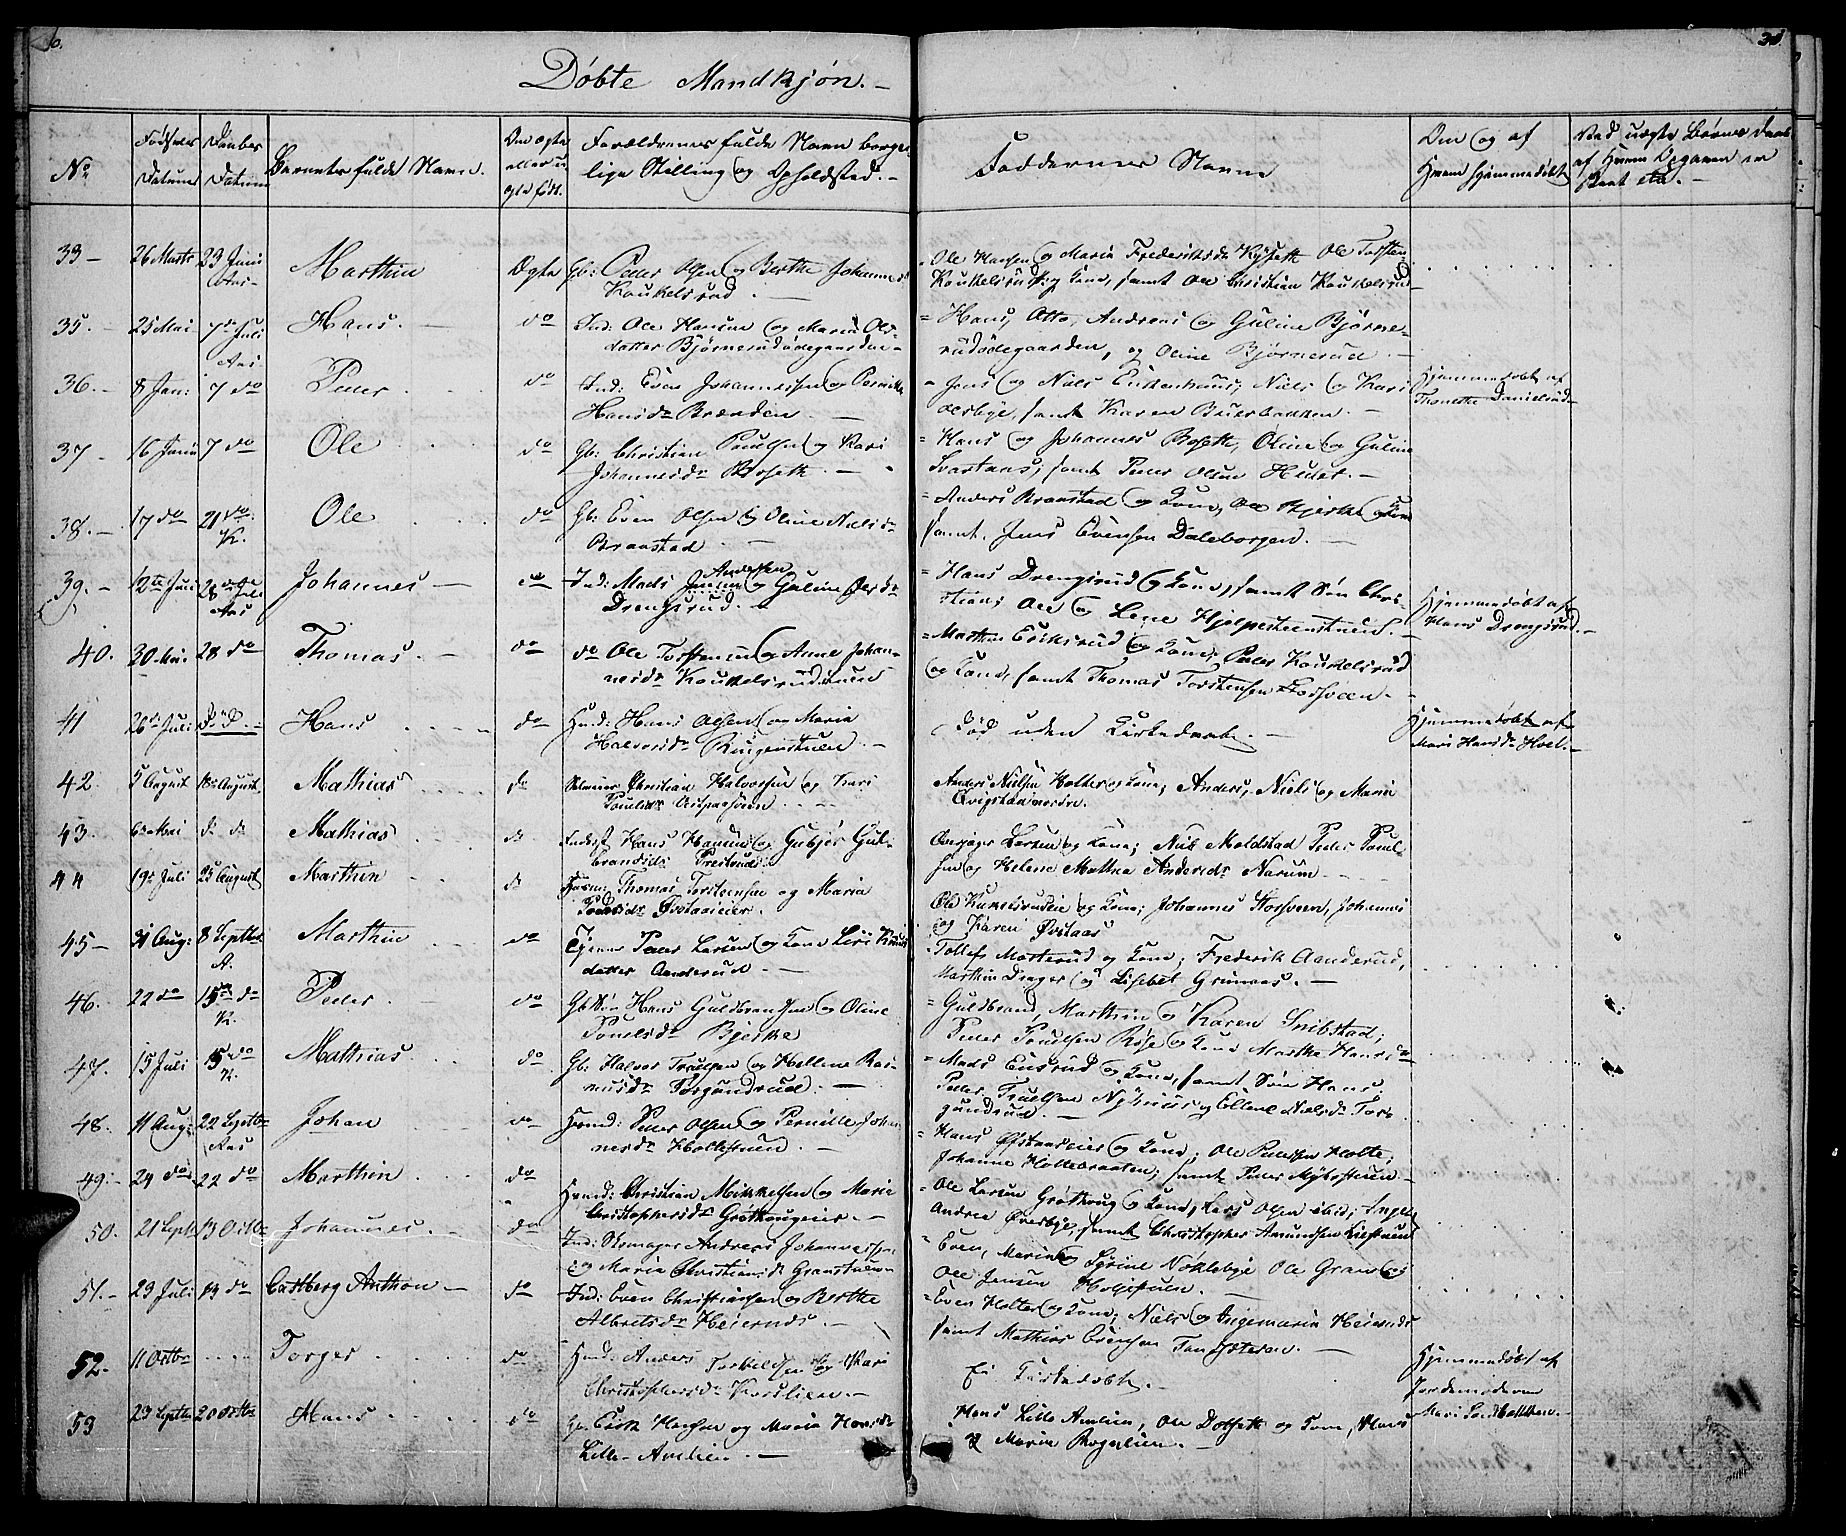 30.
Døbte Mandkjøn. -
No
Fødsels Datum
Daabens Datum
Barnets fulde Navn.
Om Ægte eller u- ægte født.
Forældrenes fulde Navn borger- lige Stilling og Opholdsted. -
Faddernes Navne
Om og af Hvem hjemmedøbt
Ved uægte Børns Daab af Hvem Opgaven er
33 - 26 Marts 23 Juni Marthin Ægte Gb: Peder Olsen og Berthe Johannesd
Koukelsrud. -
Ole Hansen og Maria Frederiksdr Ole Torsten
Koukelsrud og Kone, samt Ole Christian Koukelsrud
35. - 25 Mai 7de Juli Aas Hans. - do Ind: Ole Hansen og Maria Ols-
datter Bjørnerudødegaarden -
Hans, Otto, Andreas og Guline Bjørne-
rudødegaarden, og Oline Bjørnerud. -
36. - 8 Jan: 7 do Peder do Ind: Even Johannessen og Pernille
Hansdr Brænden. -
Jens og Niels Niels og Kari
samt Karen
Hjemmedøbt af
Thonette Danielsrud
37 - 16 Juni 7 do Ole do Gb: Christian Poulsen og Kari
Johannesdr Bosett. -
Hans og Johannes Bosett, Oline og Guline
Svastaas, samt Peder Olsen
38. - 17 do 21 do K. Ole do Gb: Even Olsen og Oline Nielsdr
Braastad -
Anders Braastad og Kone, Ole Bjerke og Kone
samt Jens Evensen Daleborgen. -
39. - 12te Juni 28de Juli Aas Johannes - do Ind: Mads Jensen Andersen og Guline Olsdr
Drengsrud. -
Hans Drengsrud og Kone, samt Søn Chris-
tian, Ole og Lene Hjelpesteenstuen. -
Hjemmedøbt af
Hans Drengsrud. -
40. 30 Mai 28 do Thomas - do do Ole Torstensen og Anne Johan-
nesdr Koukelsrudstuen
Marthin Eriksrud og Kone, Peder Koukelsrud
og Kone, samt Thomas Torstensen Korsveen. -
41 26de Juli Død. Hans do Husmd: Hans Olsen og Maria
Halvorsdr Ringenstuen. -
Død uden Kirkedaab. -
Hjemmedøbt af
Mari Hansdr Hoel. -
42. 5 August 18 August Mathias do Christian Halvorsen og Kari
Poulsdr
Anders Nielsen Holter og Kone; Anders, Niels og Maria
Qvigstad nordre.
43. 6 Mai d: d: Mathias d: Inderst Hans Hansen og Gubjør Gul-
brandsdr Prestrud
Larsen og Kone; Nils Moldstad Peder Poul-
sen og Helene Mathea Andersdr Narum
44 19de Juli 25 August Marthin d: Husm: Thomas Torstensen og Maria
Poulsdr Østaaseier.
Ole Kukelsrudeie og Kone; Johannes Korsveen, Johannes
og Karen Østaas
45 - 31 Aug: 8 Septbr A. Marthin do Tjener Peder Larsen og Kone Lisi Knuds
datter Aanderud. -
Tollef Mosterud og Kone; Frederik Aanderud,
Marthin Dreger og Lisebet Grimaas. -
46. 22 do 15 do K. Peder - do Gb Søn Hans Guldbrandsen og Oline
Poulsdr Bjerke
Guldbrand, Marthin og Karen Snibstad;
Peder Poulsen Røise og Kone Marthe Hansdr
47. 15 Juli 15 do K. Mathias do Gb: Halvor Truelsen og Hellene Ras-
musdr Torgundrud. -
Mads Eriksrud og Kone, samt Søn Hans
Peder Truelsen Nyhuus og Ellene Nielsdr Tor-
gundrud. -
48. 11 Aug: 22 Septbr Aas Johan do Husmd: Peder Olsen og Pernille Johan
nesdr Holtestuen. -
Hans Østaaseier og Kone; Ole Pedersen Holte;
Johanne Holtebraaten; samt Peder Myhrstuen -
49. - 24 do 22 do Marthin do Husmd: Christian Mikkelsen og Maria
Christophersdr Grøthougeier. -
Ole Larsen Grøthoug og Kone, Lars Olsen ibid; Inger
Andrea Øverbye, samt Christopher Amundsen
50. 21 Septb 13 Octbr Johannes. - do Ind: Skomager Andreas Johannessen
og Maria Christiansdr Granstuen -
Even, Maria og Syrine Nøklebye Ole Gran og
Ole Jensen
51. - 29 Juli 13 do Castberg Anthon - do Ind: Even Christiansen og Berthe
Albretsdr Heiernds. -
Even Holter og Kone; Niels og Ingemaria
samt Mathias Evensen
52. - 11 Octbr Torger do Husmd: Anders Torkildsen og Kari
Christophersdr Korslien. -
Ei Kirkedøbt. -
Hjemmedøbt af
Jordemoderen
Mari
53 29 Septbr 20 Octbr Hans do Gb: Erik Hansen og Maria Hansdr
Lille Amlien. -
Hans Lille Amlien, Ole og Kone, Hans
& Maria -